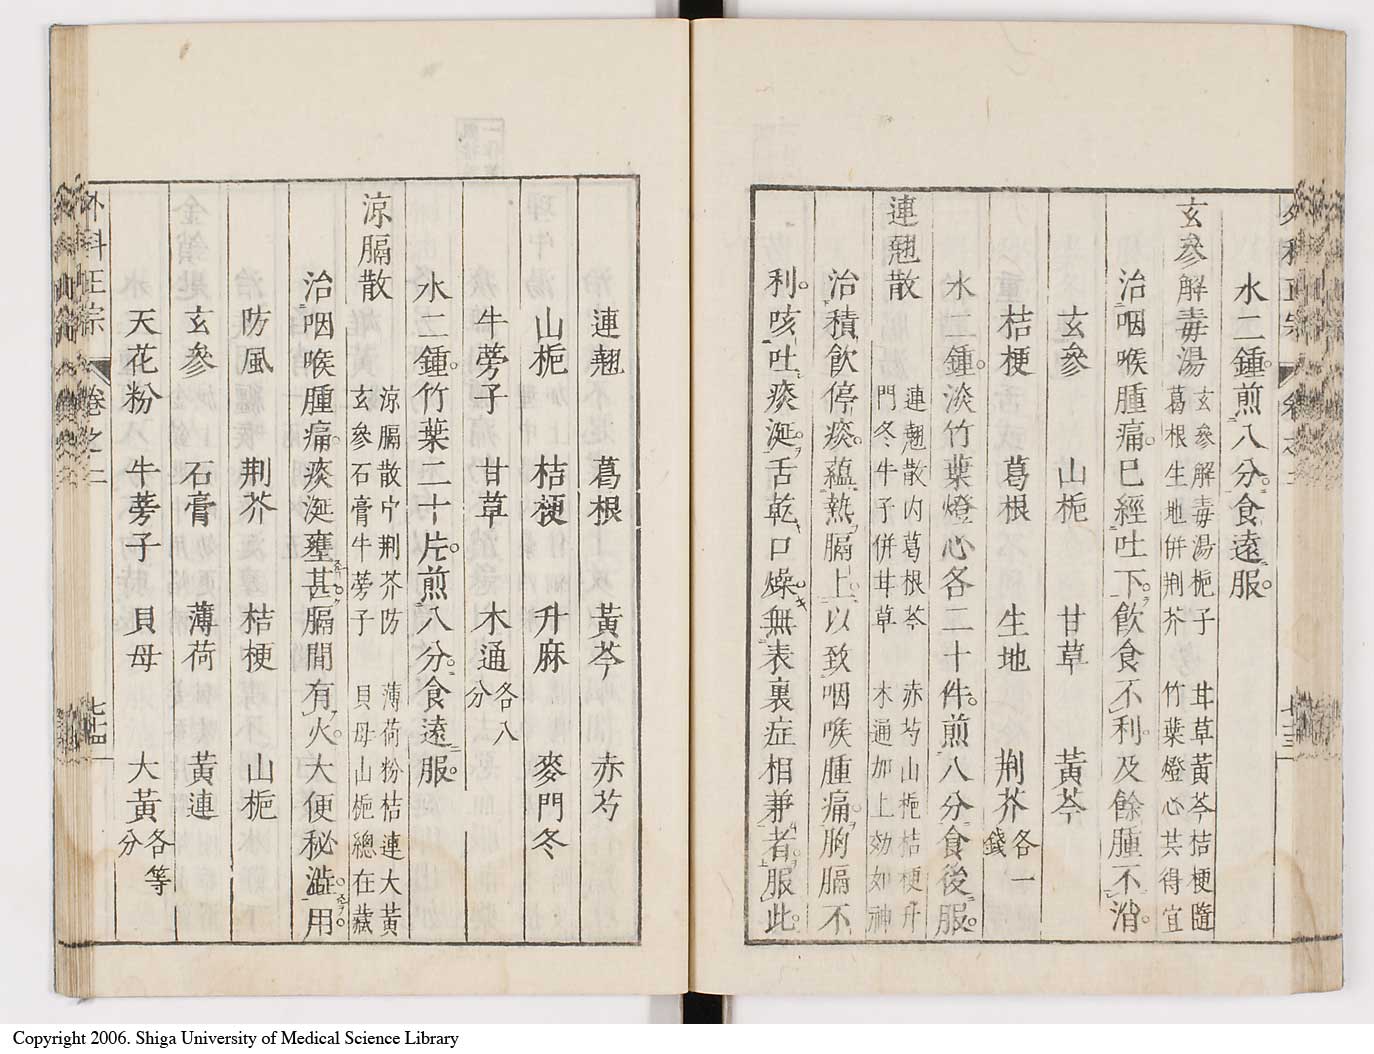 水二鍾煎八分食遠服
玄參解毒湯 玄參解毒湯梔子 甘草黃芩桔梗隨
葛根生地併荆芥 竹葉燈心共得宜
治咽喉腫痛已經吐下飲食不利及餘腫不消
玄參 山梔 甘草 黃芩
桔梗 葛根 生地 荆芥各一錢
水二鍾淡竹葉燈心各二十件煎八分食後服
連翹散 連翹散內葛根芩 赤芍山梔桔梗升
門冬牛子併甘草 木通加上効如神
治積飲停痰蘊熱膈上以致咽喉腫痛胸膈不
利咳吐痰涎舌乾口燥無表裏症相兼者服此
外科正宗 卷之二 七十三
連翹 葛根 黃芩 赤芍
山梔 桔梗 升麻 麥門冬
牛蒡子 甘草 木通各八分
水二鍾竹葉二十片煎八分食遠服
涼膈散 涼膈散中荆芥防 薄荷粉桔連大黃
玄參石膏牛蒡子 貝母山梔總在藏
治咽喉腫痛痰涎壅甚膈間有火大便秘澁用
防風 荆芥 桔梗 山梔
玄參 石膏 薄荷 黃連
天花粉 牛蒡子 貝母 大黃各等分
外科正宗 卷之二 七十四
Copyright 2006. Shiga University of Medical Science Library